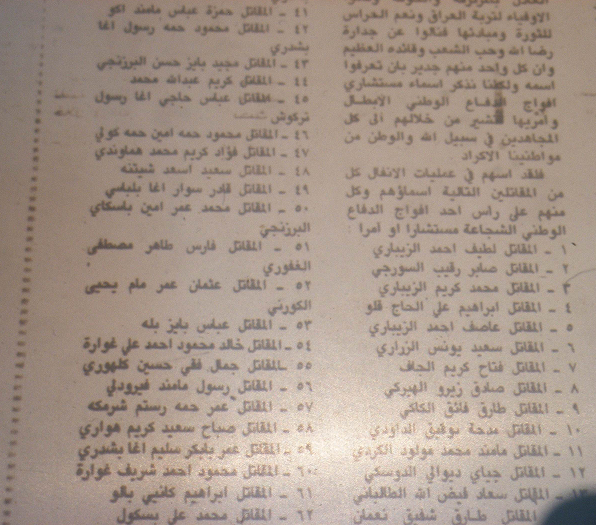 الاوفياء لتربة العراق ونعم الحراس
للثورة ومبادئها فنالوا عن جدارة
رضا الله وحب الشعب وقائده العظيم
وان كل واحد منهم جدير بان تعرفوا
اسمه ولكننا نذكر اسماء مستشاري
افواج الدفاع الوطني الابطال
وآمريها نشير من خلالهم الى كل
المجاهدين في سبيل الله والوطن من
مواطنينا الاكراد
فلقد اسهم في عمليات الانفال كل
من المقاتلين التالية اسماؤهم وكل
منهم على راس احد افواج الدفاع
الوطني الشجاعة مستشارا او آمرا
١ - المقاتل لطيف احمد الزيباري
٢ - المقاتل صابر رقيب السورجي
٣ - المقاتل محمد كريم الزيباري
٤ - المقاتل ابراهيم علي الحاج قلو
٥ - المقاتل عاصف احمد الزيباري
٦ - المقاتل سعيد يونس الزراري
٧ - المقاتل فتاح كريم الجاف
٨ - المقاتل صادق زيرو الهيركي
٩ - المقاتل طارق فائق الكاكي
١٠ - المقاتل مدحة توفيق الداودي
١١ - المقاتل مامند محمد مولود الكردي
١٢ - المقاتل جياي ديوالي الدوسكي
١٣ - المقاتل سعاد فيض الله الطالباني
المقاتل طارق شفيق نعمان
٤١ - المقاتل حمزة عباس مامند اكو
٤٢ - المقاتل محمود حمه رسول اغا
بشدري
٤٣ - المقاتل مجيد بايز حسن البرزنجي
٤٤ - المقاتل كريم عبدالله محمد
٤٥ - المقاتل عباس حاجي اغا رسول
تركوش
٤٦ - المقاتل محمود حمه امين حمه كولي
٤٧ - المقاتل فؤاد كريم محمد هماوندي
٤٨ - المقاتل سعيد اسعد شيتنه
٤٩ - المقاتل قادر سوار اغا بلباسي
٥٠ - المقاتل محمد عمر امين باسكاي
البرزنجي
٥١ - المقاتل فارس طاهر مصطفى
الغفوري
٥٢ - المقاتل عثمان عمر مام يحيى
الكوزني
٥٣ - المقاتل عباس بايز بله
٥٤ - المقاتل خالد محمود احمد علي غوارة
٥٥ - المقاتل جمال فقي حسين كلهوري
٥٦ - المقاتل رسول مامند فيرودلي
٥٧ - المقاتل عمر حمه رستم شرمكه
٥٨ - المقاتل صباح سعيد كريم هواري
٥٩ - المقاتل عمر بابكر سليم اغا بشدري
٦٠ - المقاتل محمود احمد شريف غوارة
٦١ - المقاتل ابراهيم كانبي بالو
٦٢ - المقاتل محمد علي بسكول